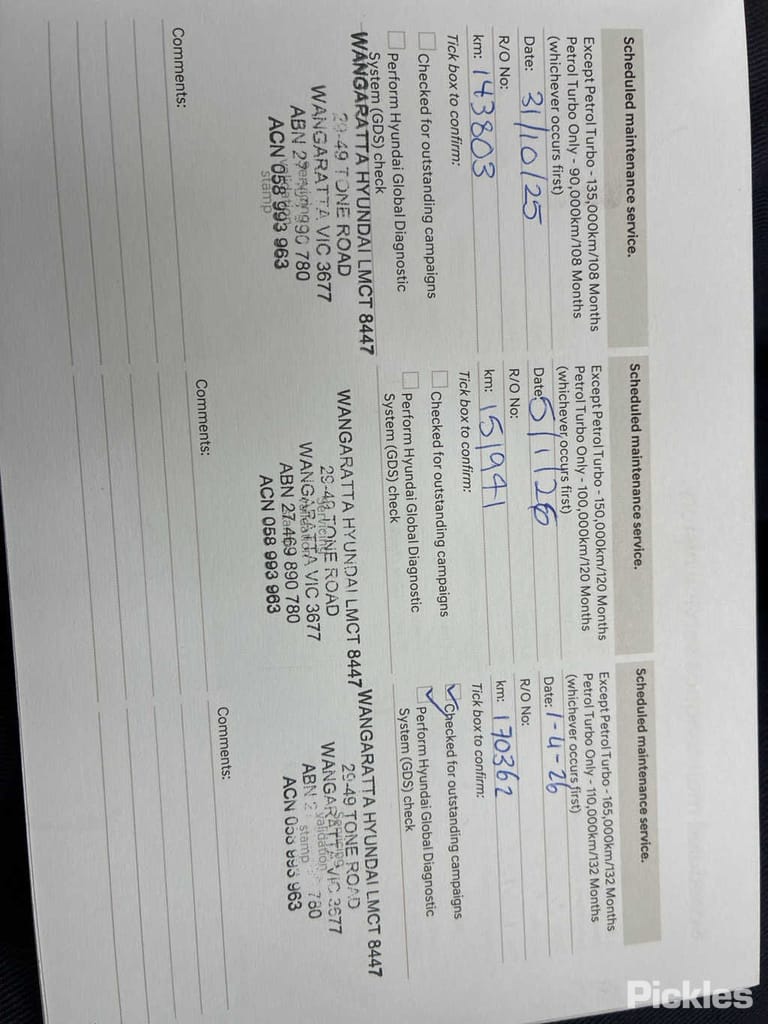 Scheduled maintenance service.
Except Petrol Turbo - 135,000km/108 Months
Petrol Turbo Only - 90,000km/108 Months
(whichever occurs first)
Date: 31/10/25
R/O No:
km: 143803
Tick box to confirm:
Checked for outstanding campaigns
Perform Hyundai Global Diagnostic
System (GDS) check
WANGARATTA HYUNDAI LMCT 8447
29-49 TONE ROAD
WANGARATTA VIC 3677
ABN 27 990 780
ACN 058 993 963
stamp
Comments:
Scheduled maintenance service.
Except Petrol Turbo - 150,000km/120 Months
Petrol Turbo Only - 100,000km/120 Months
(whichever occurs first)
Date: 5/1/26
R/O No:
km: 151941
Tick box to confirm:
Checked for outstanding campaigns
Perform Hyundai Global Diagnostic
System (GDS) check
WANGARATTA HYUNDAI LMCT 8447
29-49 TONE ROAD
WANGARATTA VIC 3677
ABN 27 469 890 780
ACN 058 993 963
Comments:
Scheduled maintenance service.
Except Petrol Turbo - 165,000km/132 Months
Petrol Turbo Only - 110,000km/132 Months
(whichever occurs first)
Date: 1-4-26
R/O No:
km: 170362
Tick box to confirm:
Checked for outstanding campaigns
Perform Hyundai Global Diagnostic
System (GDS) check
WANGARATTA HYUNDAI LMCT 8447
29-49 TONE ROAD
WANGARATTA VIC 3677
validation
ABN 2 stamp 780
ACN 963
Comments:
Pickles